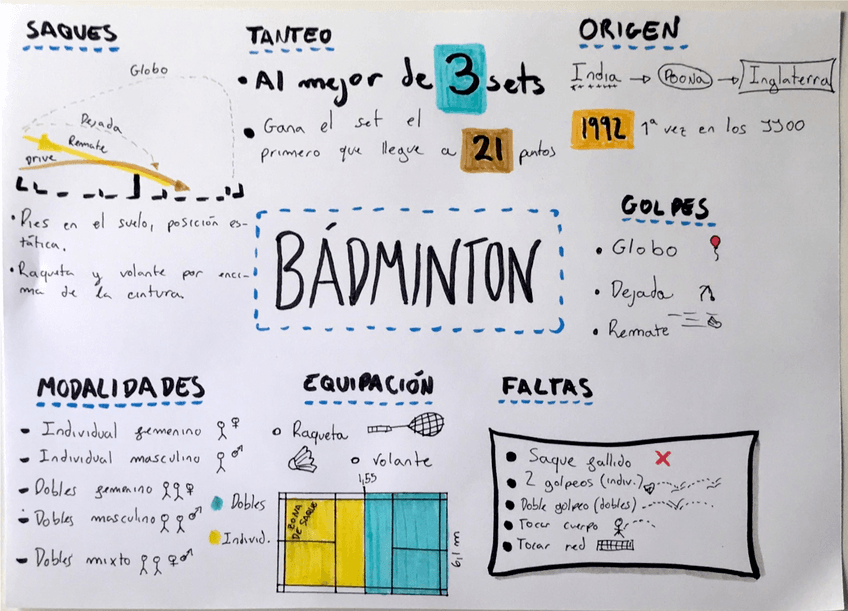 SAQUES
Globo
Dejada
Remate
Drive
• Pies en el suelo, posición es-
tática.
• Raqueta y volante por enci-
ma de la cintura.
TANTEO
• Al mejor de 3 sets
• Gana el set el
primero que llegue a 21 puntos
ORIGEN
India → POONA → Inglaterra
1992 1ª vez en los JJOO
BÁDMINTON
GOLPES
• Globo
• Dejada
• Remate
MODALIDADES
- Individual femenino
- Individual masculino
- Dobles femenino
- Dobles masculino
- Dobles mixto
EQUIPACIÓN
o Raqueta
o Volante
1,55
Dobles
Individ.
ZONA
DE SAQUE
6,1 m
FALTAS
• Saque fallido
• 2 golpeos (indiv.)
• Doble golpeo (dobles)
• Tocar cuerpo
• Tocar red